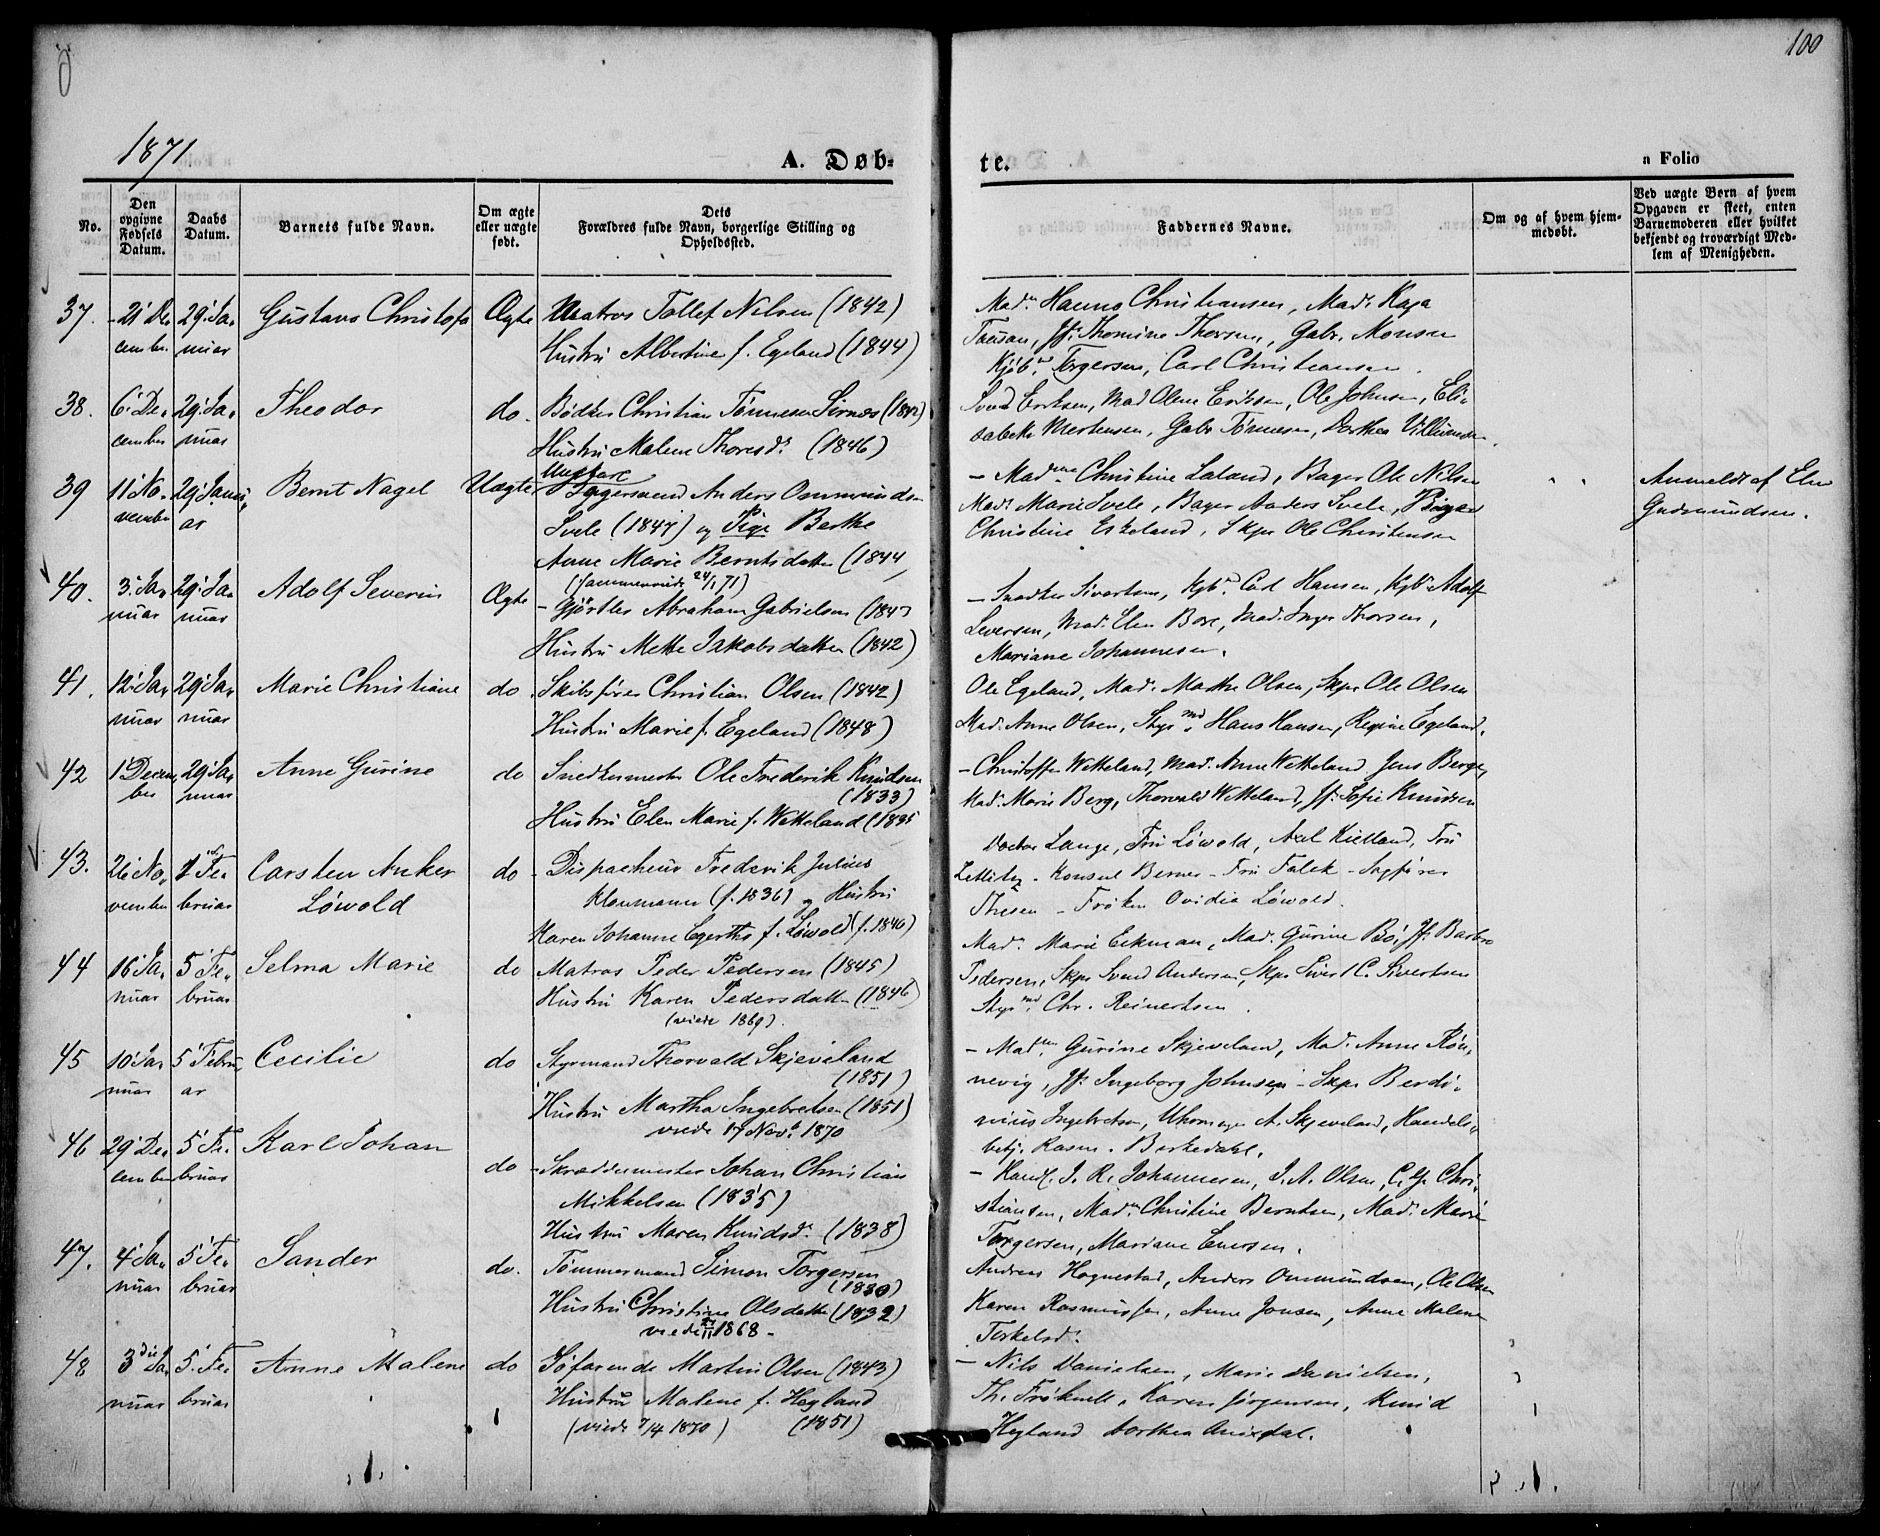 100
1871.
A. Døb-
te.
n Folio
No.
Den opgivne Fødsels Datum.
Daabs Datum.
Barnets fulde Navn.
Om ægte eller uægte født.
Dets Forældres fulde Navn, borgerlige Stilling og Opholdssted.
Faddernes Navne.
Om og af hvem hjemmedøbt.
Ved uægte Børn af hvem Opgaven er skeet, enten Barnemoderen eller hvilket bekjendt og troværdigt Medlem af Menigheden.
37. 21' De 29' Ja, Gustava Christofa Ægte Matros Tollef Nilsen (1842) Madm Hanna Christiansen, Mad. Kaja
cember nuar Hustru Albertine f. Egeland (1844) Jf. Thomine Thorsen, Gabr. Monsen
Kjøbm Torgersen, Carl Christiansen.
38. 6' De, 29' Ja, Theodor do. Bødker Christian Tønnesen Sirnes (1842) Svend Eriksen, Mad Olene Eriksen, Ole Johnsen, Eli-
cember nuar Hustru Malene Thoresd. (1846) sabeth Mortensen, Gabr Tønnesen, Dorthea Villumsen.
39 11' No- 29' Janu, Bernt Nagel Uægte Ungkarl - Madme Christine Laland, Bager Ole Nilsen Anmeldt af Elen
vember ar Anders Ommundsen Mad. Marie Svele, Bager Anders Svele, Gudmundsen.
Svele (1847) og Pige Berthe Christine Eskeland, Skpr Ole Christensen
Anne Marie Berntsdatter (1844)
(sammenviede 24/1 71)
40. 3' Ja, 29' Ja, Adolf Severin Ægte - Gjørtler Abraham Gabrielsen (1843 - Snedker Sivertsen, Kjbm. Carl Hansen, Kjbm Adolf
nuar nuar Hustru Mette Jakobsdatter (1842) Seversen, Mad. Elen Bore, Mad. Inger Thorsen,
Mariane Johannesen.
41. 12' Ja, 29' Ja, Marie Christiane do. Skibsfører Christian Olsen (1842) Ole Egeland, Mad. Marthe Olsen, Skpr Ole Olsen
nuar nuar Hustru Marie f. Egeland (1848) Mad. Anne Olsen, Stymd. Hans Hansen, Regine Egeland.
42 1' Decem, 29' Ja, Anne Gurine do Snedkermester Ole Frederik Knudsen - Christoffer Wetteland, Mad. Anne Wetteland, Jens Berge,
ber nuar (1833) Mad. Marie Berg, Thorvald Wetteland, Jf. Sofie Knudsen
Hustru Elen Marie f. Wetteland (1835
43. 26' No, 1' Fe- Carsten Anker do - Dispacheur Frederik Julius Doctor Lange, Fru Løwold, Axel Kielland, Fru
vember bruar Løwold Klaumann (f. 1836) og Hustru Zetlitz - Konsul Berner - Fru Falck - Sagfører
Karen Johanne Egertha f. Løwold (f. 1840) Thesen - Frøken Ovidia Løwold.
44 16' Ja, 5' Fe, Selma Marie do Matros Peder Pedersen (1845) Mad. Marie Eckman, Mad. Gurine Bø, Jf. Barbro
nuar bruar Hustru Karen Pedersdatter (1846) Pedersen, Skpr Svend Andersen, Skpr Sivert C. Sivertsen
(viede 1869). Stymd. Chr. Reinertsen.
45 10' Ja, 5' Febru, Cecilie do Styrmand Thorvald Skjeveland - Madm. Gurine Skjeveland, Mad. Anne Røn,
nuar ar (1851) nevig, Jf. Ingeborg Johnsen - Skpr Berdi,
Hustru Martha Ingebretsen (1851) nius Ingebretsen, Uhrmager A. Skjeveland, Handels,
viede 17 Novb. 1870 betj. Rasm. Birkedahl.
46 29' De, 5' Fe. Karl Johan do - Skræddermester Johan Christian - Handl. J. R. Johannesen, J. A. Olsen, C. G. Chri,
cember bruar Mikkelsen (1835) stiansen, Madm Christine Berntsen, Mad. Marie
Hustru Maren Knudsd. (1838) Torgersen, Mariane Enersen.
47. 4' Ja, 5' Fe, Sander do. Tømmermand Simon Torgersen Andreas Hognestad, Anders Ommundsen, Ole Olsen
nuar bruar (1830) Karen Rasmussen, Anne Jonsen, Anne Malene
Hustru Christine Olsdatter (1832) Terkelsd.
viede 1868 -
48 3die Ja, 5' Fe, Anne Malene do Søfarende Martin Olsen (1843) - Nils Danielsen, Marie Danielsen,
nuar bruar Hustru Malene f. Høyland Karen Jørgensen, Knud
(viede 7/4 1870) (1851) Høyland Dorthea